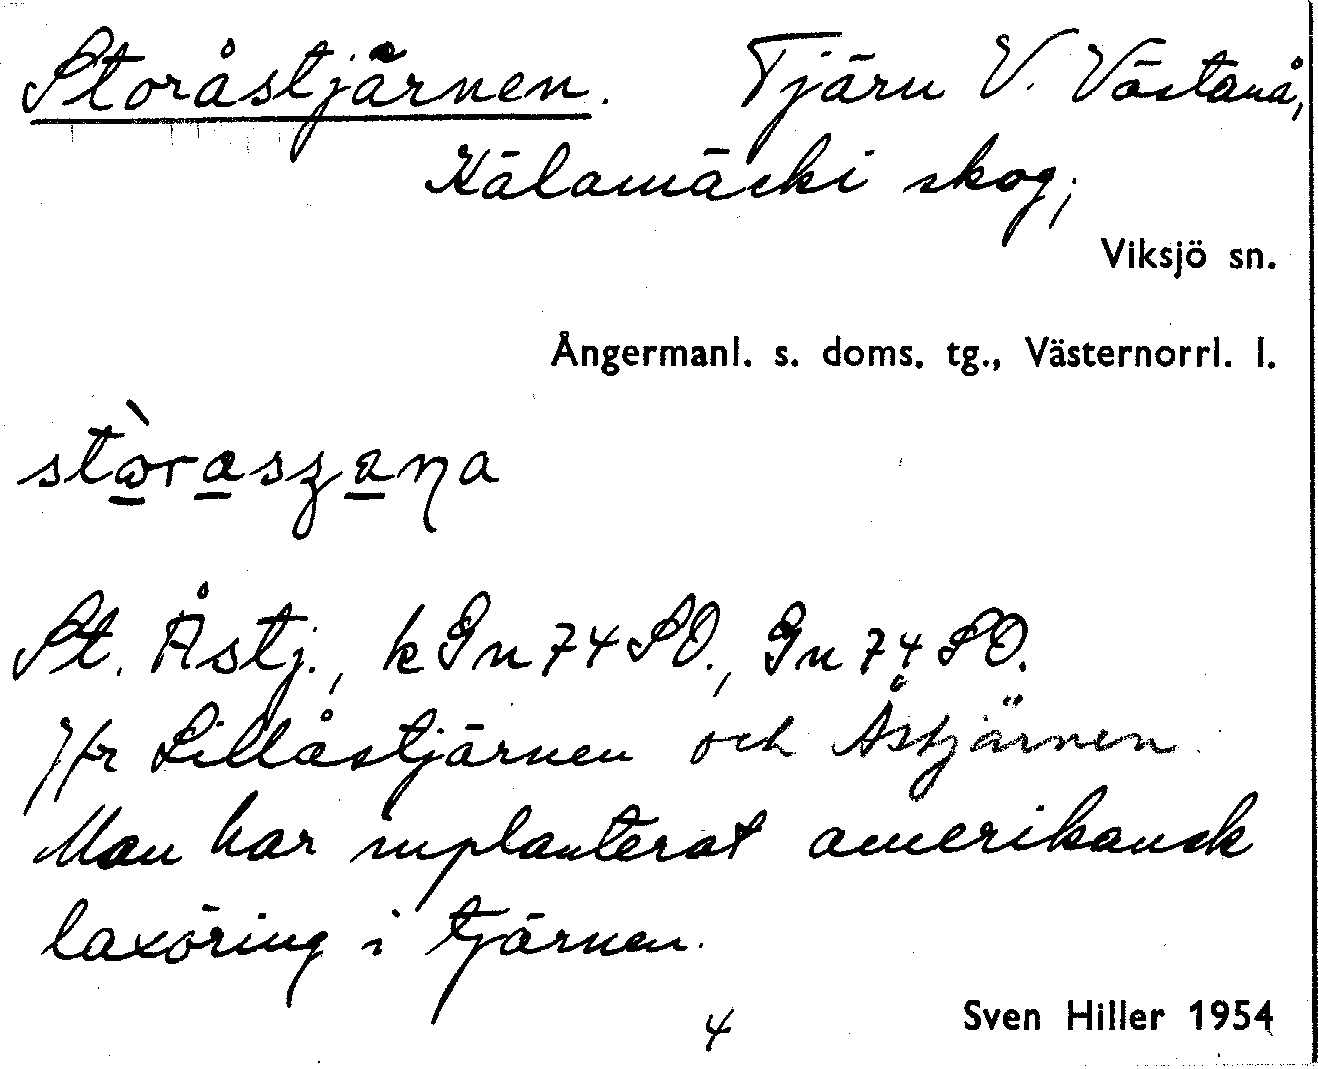 Storåstjärnen. Tjärn V. Västanå,
Kälamäcki skog;
Viksjö sn.
Ångermanl. s. doms. tg., Västernorrl. l.
St. Åstj., k Gn 74 SO., Gn 74 SO.
Jfr Lillåstjärnen och Åstjärnen
Man har inplanterat amerikansk
laxöring i tjärnen.
4
Sven Hiller 1954